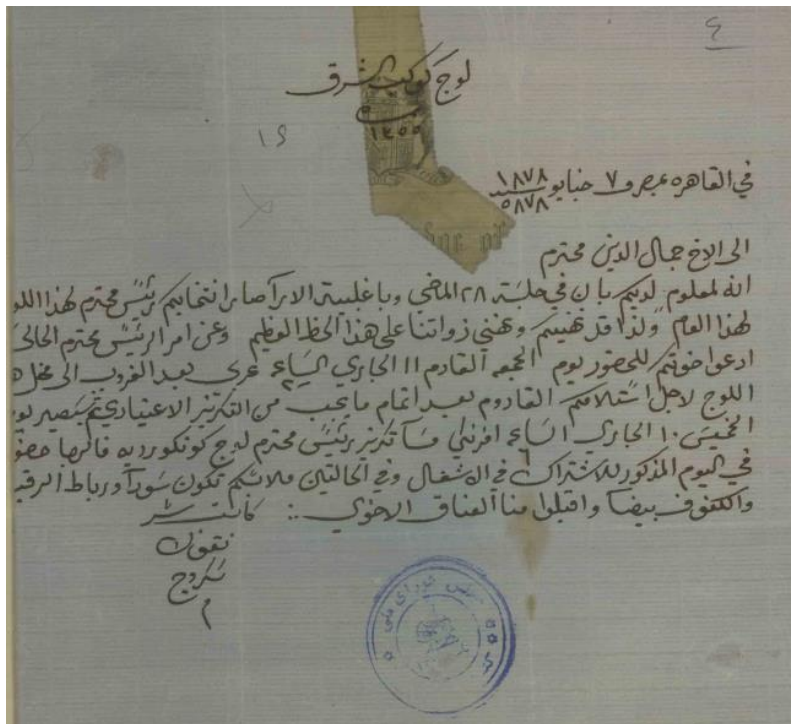 ٤
لوج كوكب الشرق
١٣٥٥
في القاهره بمصر ٧ جنايو ١٨٧٨
٥٨٧٨
الى الاخ جمال الدين محترم
انه لمعلوم لديكم بان في جلسة ٢٨ الماضي وباغلبية الابرآ صار انتخابكم رئيس محترم لهذا اللو
لهذا العام ولذا قد نهنيكم ونهني زواتنا على هذا الحظ العظيم وعن امر الرئيس محترم الحالي
ادعوا اخوتكم للحضور يوم الجمعه القادم ١١ الجاري الساعه ٢ عربي بعد الغروب الى محل
اللوج لاجل استلامكم القادوم بعد اتمام ما يجب من التكريز الاعتيادي ثم سيصير
الخميس ١٠ الجاري الساعه ٦ افرنكي مسآ تكريز رئيس محترم لوج كونكورديه فالرجا
في اليوم المذكور للاشتراك في الاشغال وفي الحالتين ملابسكم تكون سودآ ورباط الرقبه
والكفوف بيضا واقبلوا منا العناق الاخوي : كاتب سر
نقولا
سكروج